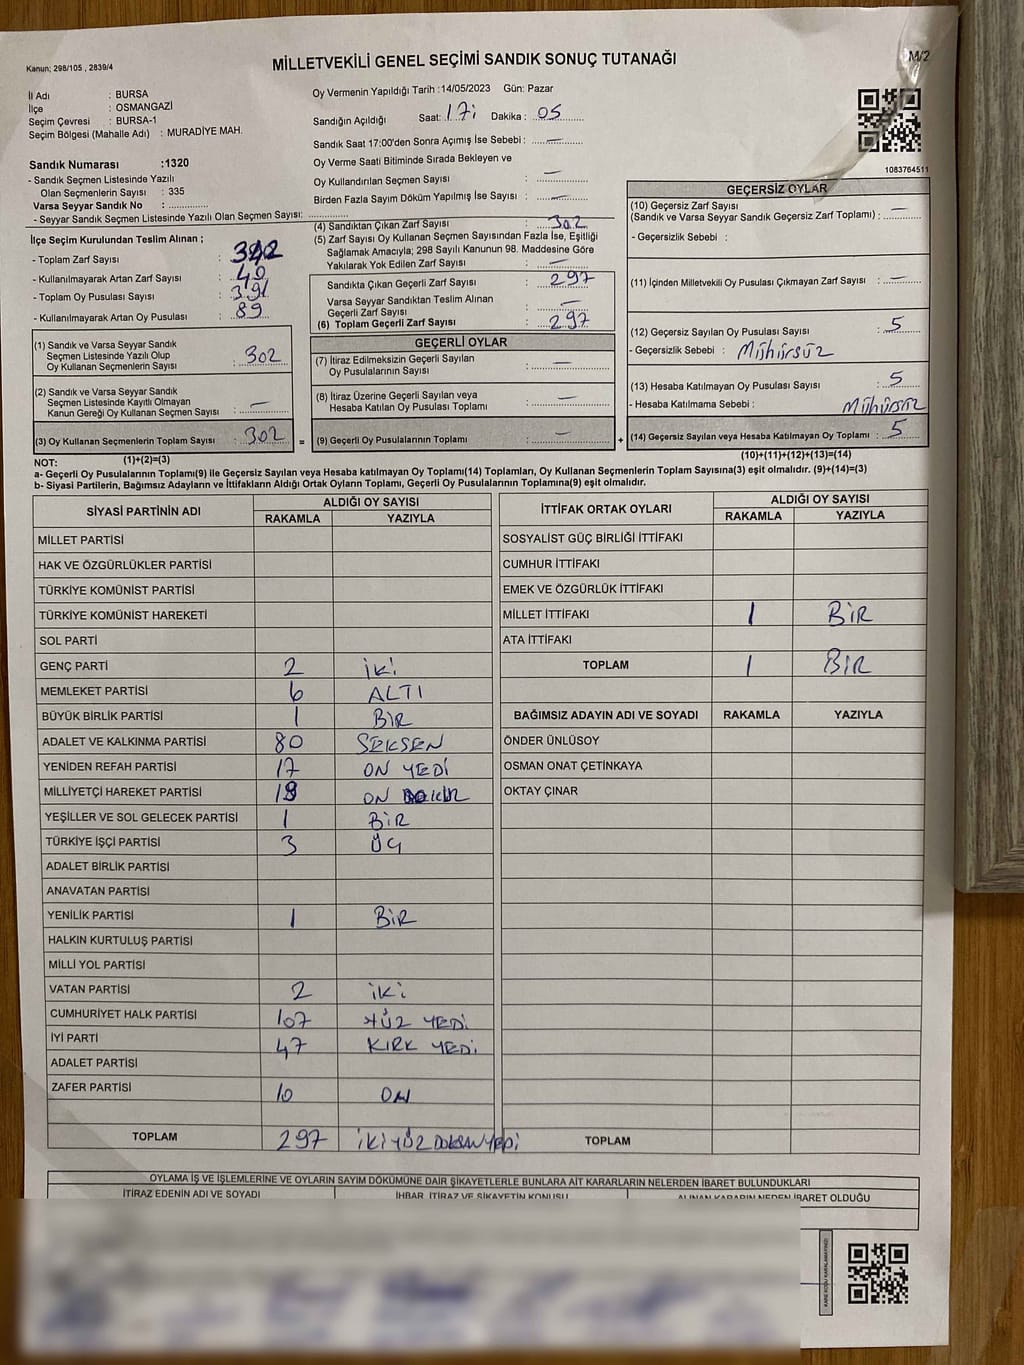 Kanun; 298/105 , 2839/4
MİLLETVEKİLİ GENEL SEÇİMİ SANDIK SONUÇ TUTANAĞI
M/2
İl Adı : BURSA
İlçe : OSMANGAZİ
Seçim Çevresi : BURSA-1
Seçim Bölgesi (Mahalle Adı) : MURADİYE MAH.
Sandık Numarası :1320
- Sandık Seçmen Listesinde Yazılı
Olan Seçmenlerin Sayısı : 335
Varsa Seyyar Sandık No :
- Seyyar Sandık Seçmen Listesinde Yazılı Olan Seçmen Sayısı:
Oy Vermenin Yapıldığı Tarih :14/05/2023 Gün: Pazar
Sandığın Açıldığı Saat: 17: Dakika : 05
Sandık Saat 17:00'den Sonra Açımış İse Sebebi : —
Oy Verme Saati Bitiminde Sırada Bekleyen ve
Oy Kullandırılan Seçmen Sayısı : —
Birden Fazla Sayım Döküm Yapılmış İse Sayısı : —
1083764511
İlçe Seçim Kurulundan Teslim Alınan ;
- Toplam Zarf Sayısı :
- Kullanılmayarak Artan Zarf Sayısı : 40
- Toplam Oy Pusulası Sayısı : 391
- Kullanılmayarak Artan Oy Pusulası : 89
(1) Sandık ve Varsa Seyyar Sandık
Seçmen Listesinde Yazılı Olup
Oy Kullanan Seçmenlerin Sayısı : 302
(2) Sandık ve Varsa Seyyar Sandık
Seçmen Listesinde Kayıtlı Olmayan
Kanun Gereği Oy Kullanan Seçmen Sayısı : —
(3) Oy Kullanan Seçmenlerin Toplam Sayısı : 302 =
(1)+(2)=(3)
(4) Sandıktan Çıkan Zarf Sayısı : 302
(5) Zarf Sayısı Oy Kullanan Seçmen Sayısından Fazla İse, Eşitliği
Sağlamak Amacıyla; 298 Sayılı Kanunun 98. Maddesine Göre
Yakılarak Yok Edilen Zarf Sayısı : —
Sandıkta Çıkan Geçerli Zarf Sayısı : 297
Varsa Seyyar Sandıktan Teslim Alınan
Geçerli Zarf Sayısı : —
(6) Toplam Geçerli Zarf Sayısı : 297
GEÇERLİ OYLAR
(7) İtiraz Edilmeksizin Geçerli Sayılan
Oy Pusulalarının Sayısı : —
(8) İtiraz Üzerine Geçerli Sayılan veya
Hesaba Katılan Oy Pusulası Toplamı : —
(9) Geçerli Oy Pusulalarının Toplamı : — +
GEÇERSİZ OYLAR
(10) Geçersiz Zarf Sayısı
(Sandık ve Varsa Seyyar Sandık Geçersiz Zarf Toplamı) : —
- Geçersizlik Sebebi :
(11) İçinden Milletvekili Oy Pusulası Çıkmayan Zarf Sayısı : —
(12) Geçersiz Sayılan Oy Pusulası Sayısı : 5
- Geçersizlik Sebebi : Mühürsüz
(13) Hesaba Katılmayan Oy Pusulası Sayısı : 5
- Hesaba Katılmama Sebebi : Mühürsüz
(14) Geçersiz Sayılan veya Hesaba Katılmayan Oy Toplamı : 5
(10)+(11)+(12)+(13)=(14)
NOT:
a- Geçerli Oy Pusulalarının Toplamı(9) ile Geçersiz Sayılan veya Hesaba katılmayan Oy Toplamı(14) Toplamları, Oy Kullanan Seçmenlerin Toplam Sayısına(3) eşit olmalıdır. (9)+(14)=(3)
b- Siyasi Partilerin, Bağımsız Adayların ve İttifakların Aldığı Ortak Oyların Toplamı, Geçerli Oy Pusulalarının Toplamına(9) eşit olmalıdır.
SİYASİ PARTİNİN ADI ALDIĞI OY SAYISI
RAKAMLA YAZIYLA
MİLLET PARTİSİ
HAK VE ÖZGÜRLÜKLER PARTİSİ
TÜRKİYE KOMÜNİST PARTİSİ
TÜRKİYE KOMÜNİST HAREKETİ
SOL PARTİ
GENÇ PARTİ 2 İKİ
MEMLEKET PARTİSİ 6 ALTI
BÜYÜK BİRLİK PARTİSİ 1 BİR
ADALET VE KALKINMA PARTİSİ 80 SEKSEN
YENİDEN REFAH PARTİSİ 17 ON YEDİ
MİLLİYETÇİ HAREKET PARTİSİ ON
YEŞİLLER VE SOL GELECEK PARTİSİ 1 BİR
TÜRKİYE İŞÇİ PARTİSİ 3 ÜÇ
ADALET BİRLİK PARTİSİ
ANAVATAN PARTİSİ
YENİLİK PARTİSİ 1 BİR
HALKIN KURTULUŞ PARTİSİ
MİLLİ YOL PARTİSİ
VATAN PARTİSİ 2 İKİ
CUMHURİYET HALK PARTİSİ 107 YÜZ YEDİ
İYİ PARTİ 47 KIRK YEDİ
ADALET PARTİSİ
ZAFER PARTİSİ 10 ON
TOPLAM 297 İKİYÜZDOKSANYEDİ
İTTİFAK ORTAK OYLARI ALDIĞI OY SAYISI
RAKAMLA YAZIYLA
SOSYALİST GÜÇ BİRLİĞİ İTTİFAKI
CUMHUR İTTİFAKI
EMEK VE ÖZGÜRLÜK İTTİFAKI
MİLLET İTTİFAKI 1 BİR
ATA İTTİFAKI
TOPLAM 1 BİR
BAĞIMSIZ ADAYIN ADI VE SOYADI RAKAMLA YAZIYLA
ÖNDER ÜNLÜSOY
OSMAN ONAT ÇETİNKAYA
OKTAY ÇINAR
TOPLAM
OYLAMA İŞ VE İŞLEMLERİNE VE OYLARIN SAYIM DÖKÜMÜNE DAİR ŞİKAYETLERLE BUNLARA AİT KARARLARIN NELERDEN İBARET BULUNDUKLARI
İTİRAZ EDENİN ADI VE SOYADI İHBAR, İTİRAZ VE ŞİKAYETİN KONUSU ALINAN KARARIN NEDEN İBARET OLDUĞU